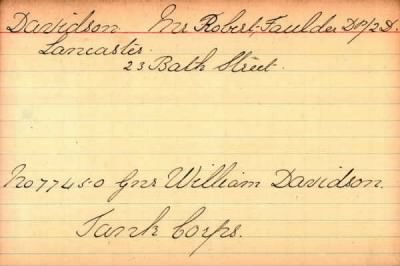 Davidson Mr Robert Faulder DP/2D.
Lancaster.
23 Bath Street.
No 77450 Gnr William Davidson.
Tank Corps.